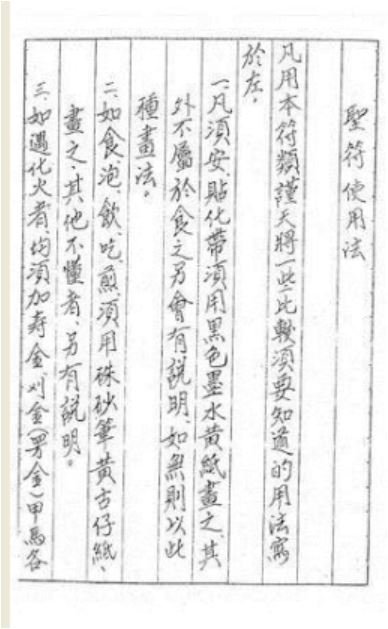 聖符使用法
凡用本符類謹天將一些比較須要知道的用法寫
於左。
一、凡須安、貼化帶須用黑色墨水黃紙畫之、其
外不屬於食之另會有説明、如無則以此
種畫法。
二、如食、泡、飲、吃、煎須用硃砂筆黃古仔紙、
畫之、其他不懂者、另有説明。
三、如遇化火者、均須加寿金、刈金(男金)甲馬各